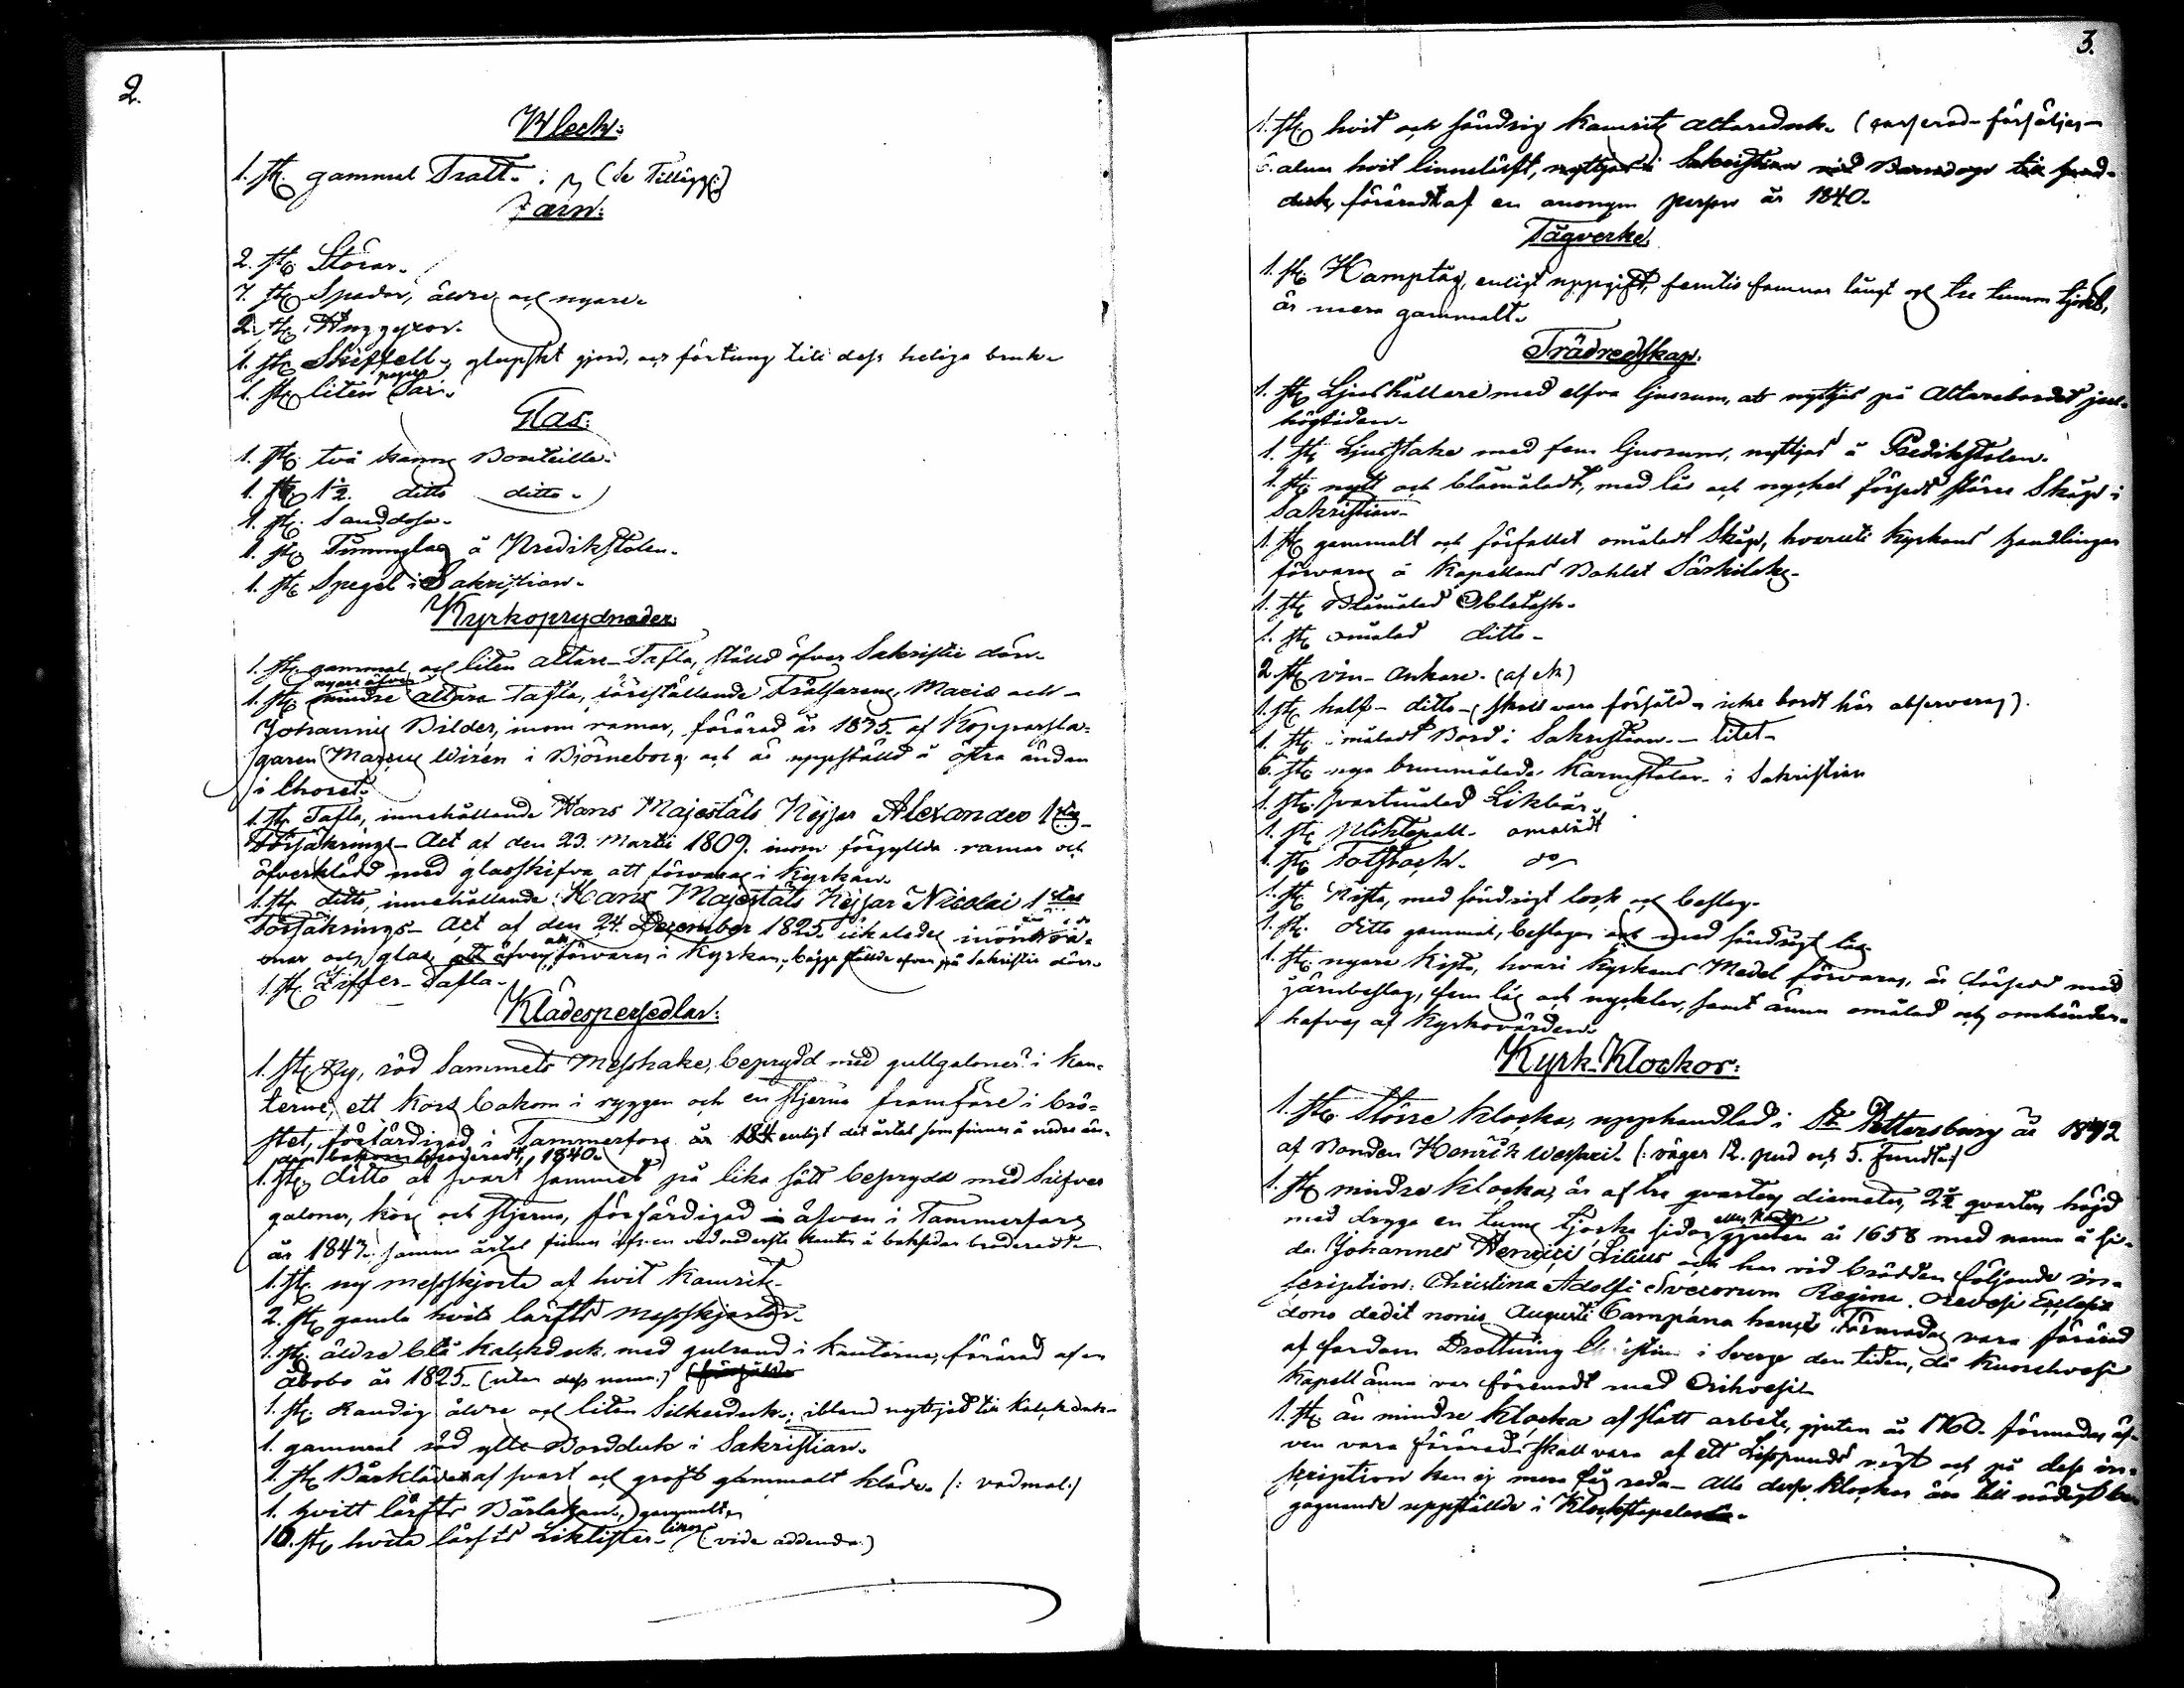 2.
Bleck:
1. st. gammal Tratt. (Se Tillägg:)
Jern:
2. st. Störar.
7. st. Spadar, äldre och nyare.
2. st.
1. st. gjord, och för tung till dess heliga bruk.
1. st. liten papper Sax.
Glas:
1. st. två kanns Bouteille.
1. st. 1½. ditto ditto.
1. st. Sanddosa.
1. st. Timmglas å Predikstolen.
1. st. Spegel i Sakristian.
Kyrkoprydnader:
1. st. gammal och liten altare-Tafla, ställd öfver Sakristie dörr.
1. st. mindre nyare altare Tafla, föreställande Frälsarens, Mariæ och
Johannis Bilder, inom ramar, förärad år 1835 af Kopparsla-
garen Wirén i Björneborg och är uppställd å östra ändan
i Choret.
1. st. Tafla, innehållande Hans Majestäts Kejsar Alexander 1stes
Försäkrings-Act af den 23. Martii 1809. inom förgyllda ramar och
öfverklädd med glasskifva, att förvaras i Kyrkan.
1. st. ditto, innehållande Hans Majestäts Kejsar Nicolai 1stes
Försäkrings-Act af den 24. December 1825. likaledes inom ra-
mar och glas, att förvaras i Kyrkan, bägge ställde ofvan på Sakristie dörr.
1. st. Ziffer-Tafla.
Klädespersedlar:
1. st. Ny, röd Sammets Messhake, beprydd med gullgaloner i kan-
terne, ett kors bakom i ryggen och en stjerna framföre i brö-
stet, förfärdigad i Tammerfors år 184 enligt det årtal som finnes å nedre än-
dan bakom broderadt, 1840.
1. st. ditto af svart sammet på lika sätt beprydd med Silfver
galoner, kors och stjerna, förfärdigad äfven i Tammerfors
år 1847. samma årtal finnes äfven vid nedersta kanten å baksidan broderadt.
1. st. ny messskjorta af hvit Kamrik.
2. st. gamla hvita lärfts messskjortor.
1. st. äldre blå kalkduk med gulrand i kanterna, förärad af en
Åbobo år 1825. (utan dess namn.)
1. st. Randig äldre och liten Silkesduk, ibland nyttjad till kalkduk.
1. gammal röd ylle Bordduk i Sakristian.
1. st. Bårkläde af svart och groft gammalt kläde. (: vadmal:)
1. hvitt lärfts Bårlakan, gammalt
10. st. hvita lärfts Liklister. (vide addenda)
3.
1. st. hvit och söndrig Kamriks altareduk.
6. alnar hvit linnelärft, nyttjas i Sakristian till hand-
duk, föräradt af en anonym person år 1840.
Tågverke.
1. st. Hamptåg, enligt uppgift, femtio famnar långt och tre tummar tjockt,
är mera gammalt.
Trädredskap.
1. st. Ljushållare med elfva ljusrum, att nyttjas på Altarebordet jul-
högtiden.
1. st. Ljusstake med fem ljusrum, nyttjas å Predikstolen.
1. st. nytt och blåmåladt, med lås och nyckel försedt större Skåp i
Sakristian.
1. st. gammalt och förfallet omåladt Skåp, hvaruti Kyrkans handlingar
förvaras å Kapellans Bohlet Särkilaks.
1. st. Blåmålad Oblatask.
1. st. omålad ditto.
2. st. vin-Ankare. (af ek)
1. st. half-ditto. (skall vara försåld, icke bordt här observeras).
1. st. omåladt Bord i Sakristian. - litet.
6. st. nya brunmålade Karmstolar. i Sakristian
1. st. Svartmålad Likbår.
1. st. Pliktepall. omåladt
1. st. do
1. st. Kista, med söndrigt lock och beslag.
1. st. ditto gammal, beslagen och med söndrigt lås.
1. st. nyare Kista, hvari Kyrkans Medel förvaras, är försedd med
järnbeslag, fem lås och nycklar, samt ännu omålad och omhänder-
hafves af Kyrkovärden.
Kyrk-Klockor:
1. st. Större klocka, upphandlad i St. Pettersburg år 1842
af Bonden Henrik (: väger 12. pud och 5. Fundt:)
1. st. mindre klocka, är af tre qvarters diameter, 2½ qvarters höjd
med dryga en tums tjocka sidor gjuten år 1658 med namn å si-
da Johannes Henrici Lilius och har vid brädden följande in-
scription: Christina Adolfi Svecorum Regina. Orevesi Ecclesiæ
dono dedit nonis Augusti Campána hancce. Förmodas vara förärad
af fordom Drottning Christina i Sverge den tiden, då Kuorehvesi
Kapell ännu var förenadt med Orihvesi.
1. st. än mindre klocka af slätt arbete, gjuten år 1760. förmodas äf-
ven vara förärad. Skall vara af ett Lispunds vigt och på dess in-
scription kan ej mera fås reda. Alla desse klockor äro till nödigt be-
gagnande uppställde i Klockstapeln.